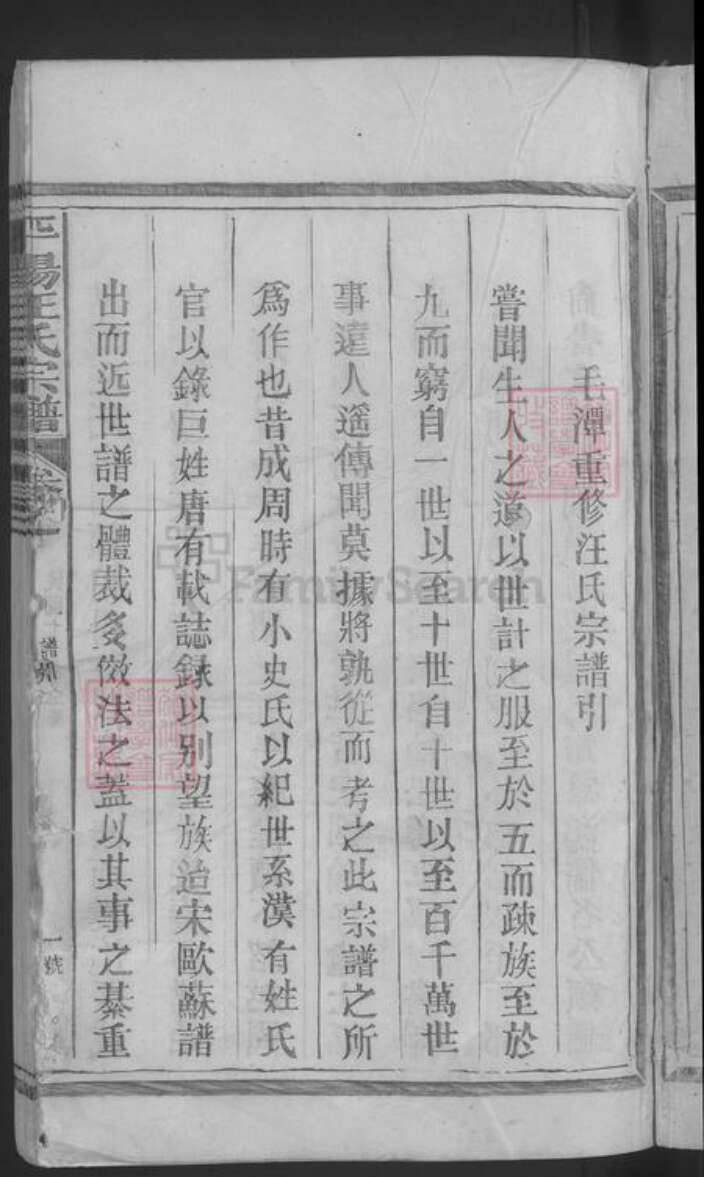 毛潭重修汪氏宗譜引
嘗聞生人之道以世計之服至於五而疎族至於
九而窮自一世以至十世自十世以至百千萬世
事遠人遥傳聞莫據將孰從而考之此宗譜之所
爲作也昔成周時有小史氏以紀世系漢有姓氏
官以錄巨姓唐有載誌録以别望族迨宋歐蘇譜
出而近世譜之體裁多倣法之蓋以其事之綦重
陽汪氏宗譜
一號
FamilySearch